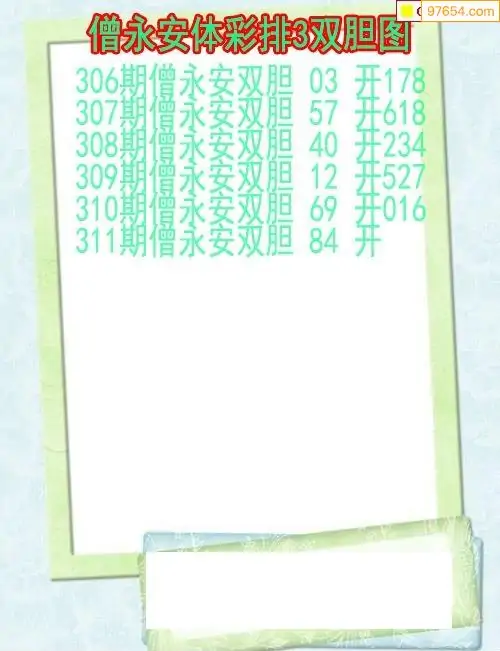 97654.com
僧永安体彩排3双胆图
306期僧永安双胆 03 开178
307期僧永安双胆 57 开618
308期僧永安双胆 40 开234
309期僧永安双胆 12 开527
310期僧永安双胆 69 开016
311期僧永安双胆 84 开